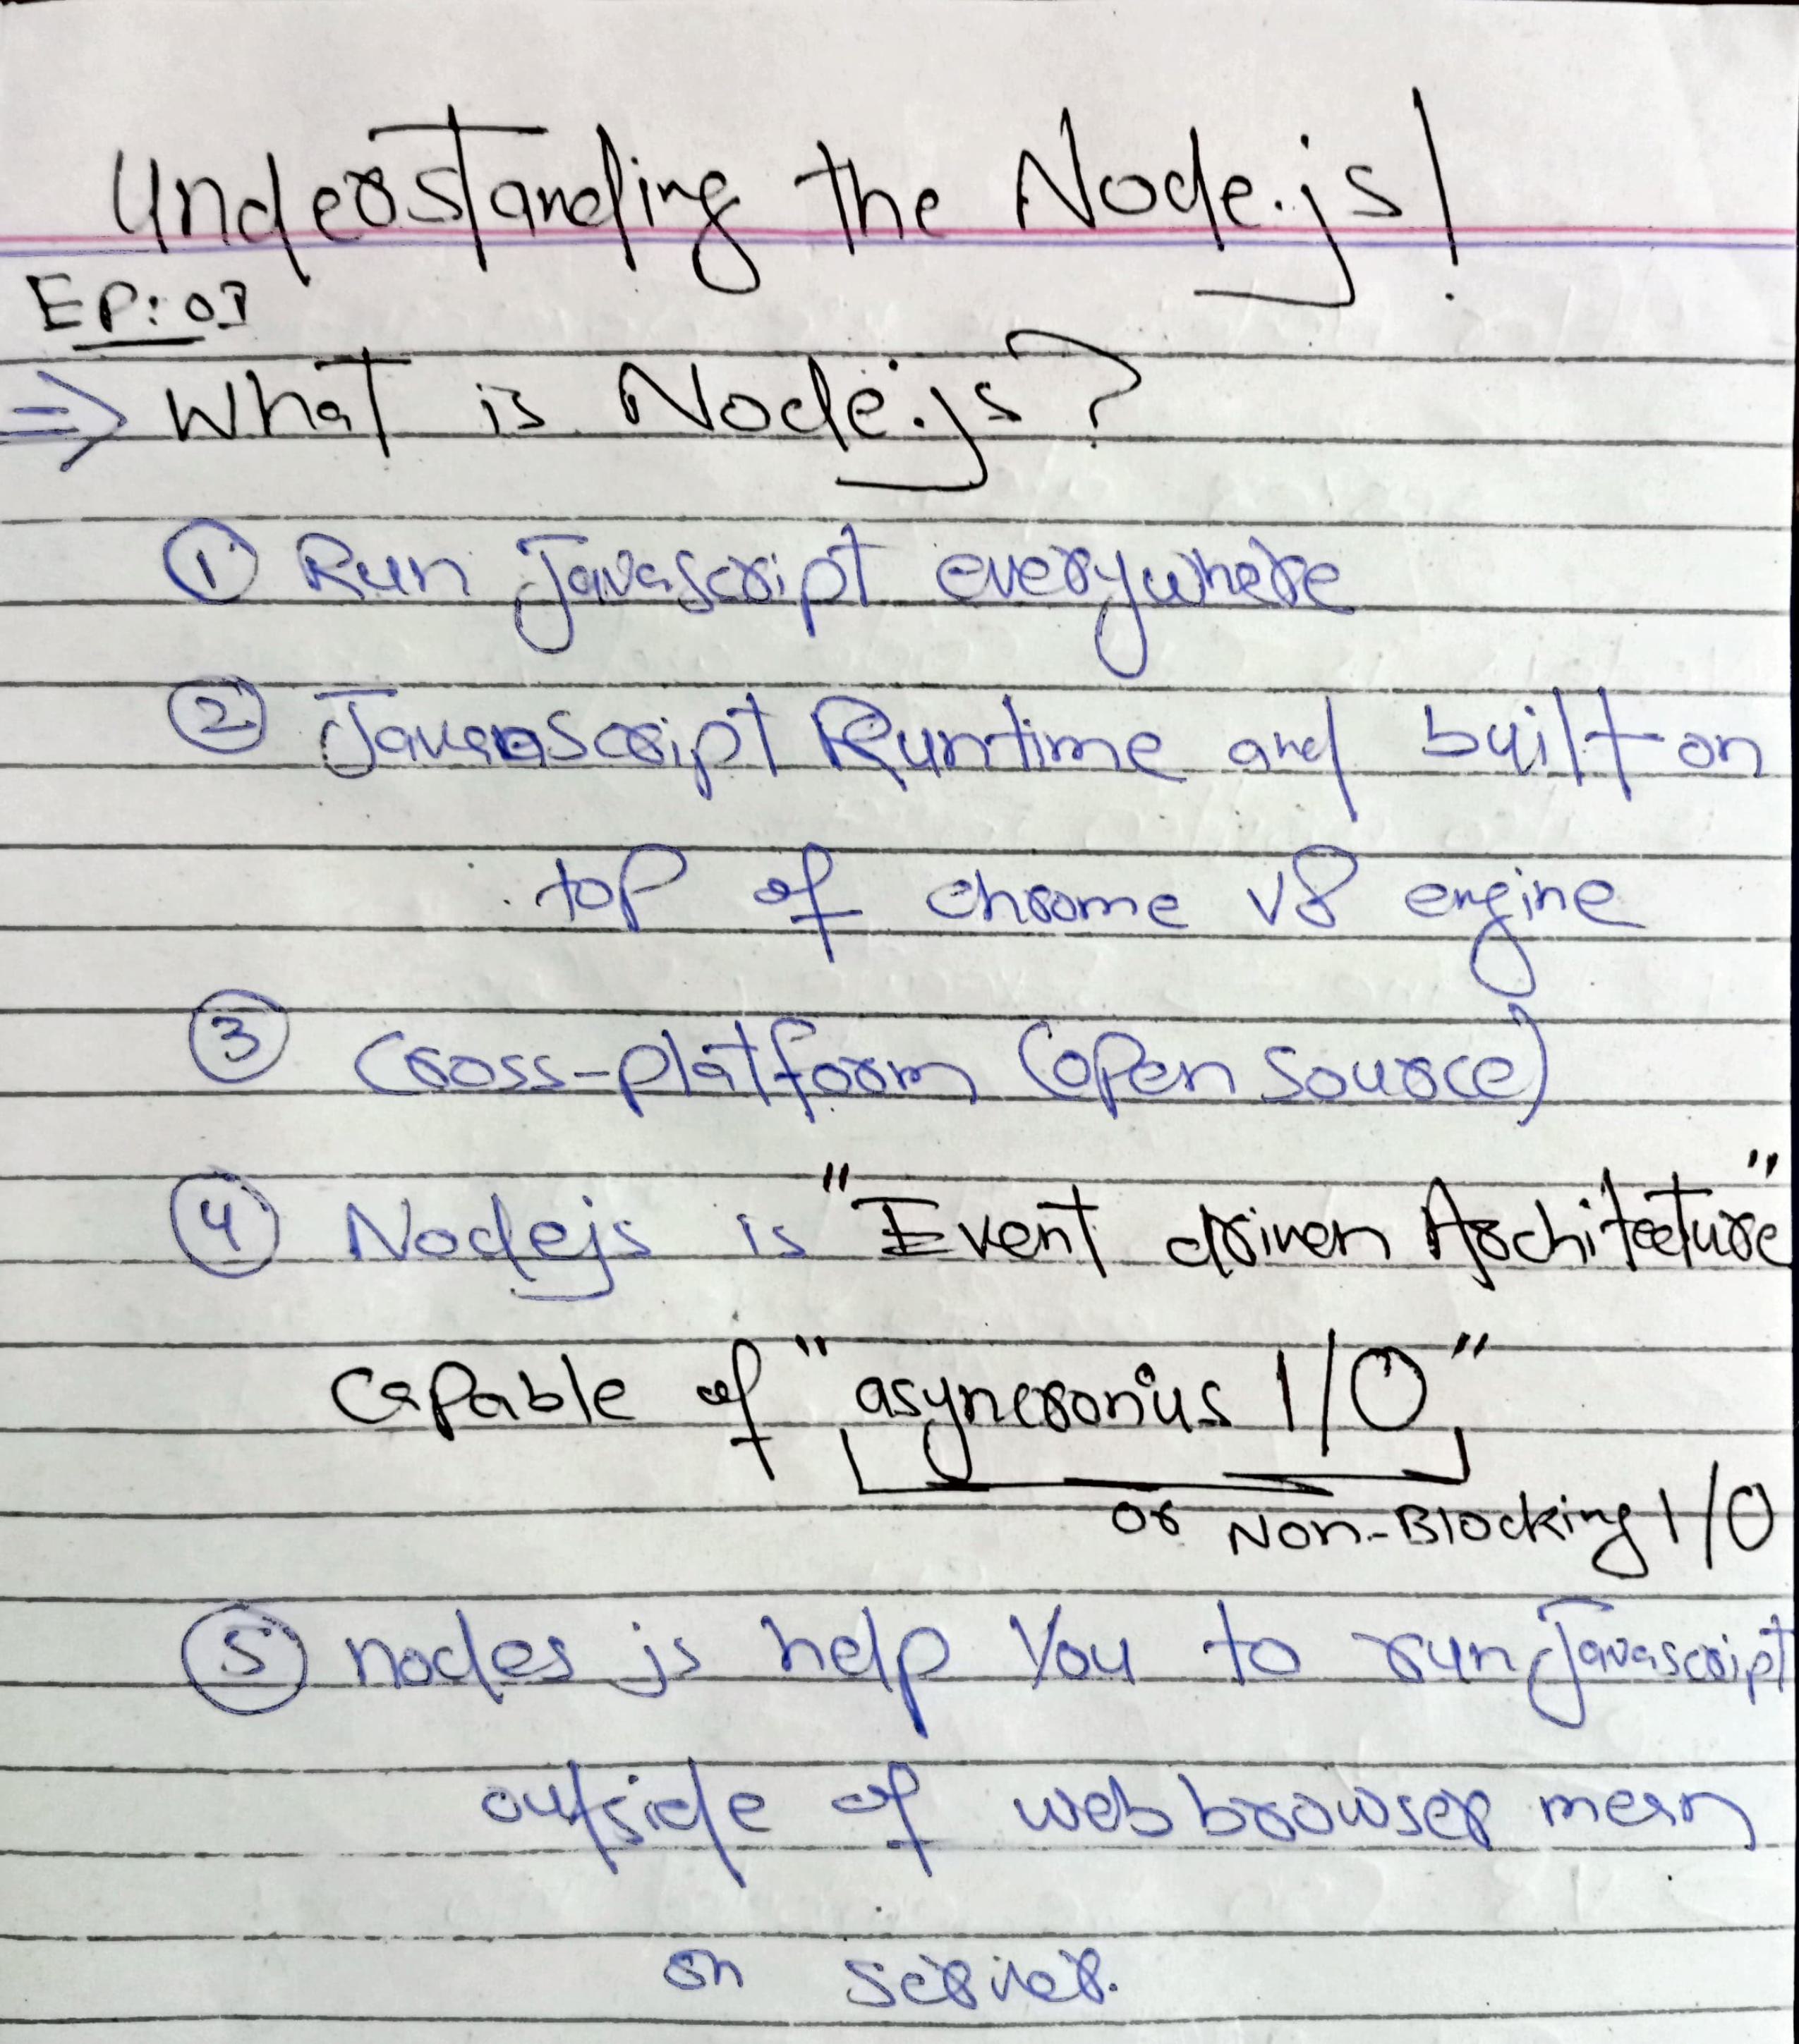 Understanding the Node.js!
EP:01
⇒ What is Node.js?
① Run Javascript everywhere
② Javascript Runtime and built on
top of chrome v8 engine
③ Cross-platform (open source)
④ Nodejs is "Event driven Architecture"
Capable of "asyncronius I/O"
or Non-Blocking I/O
⑤ nodes js help you to run Javascript
outside of web browser mean
on server.